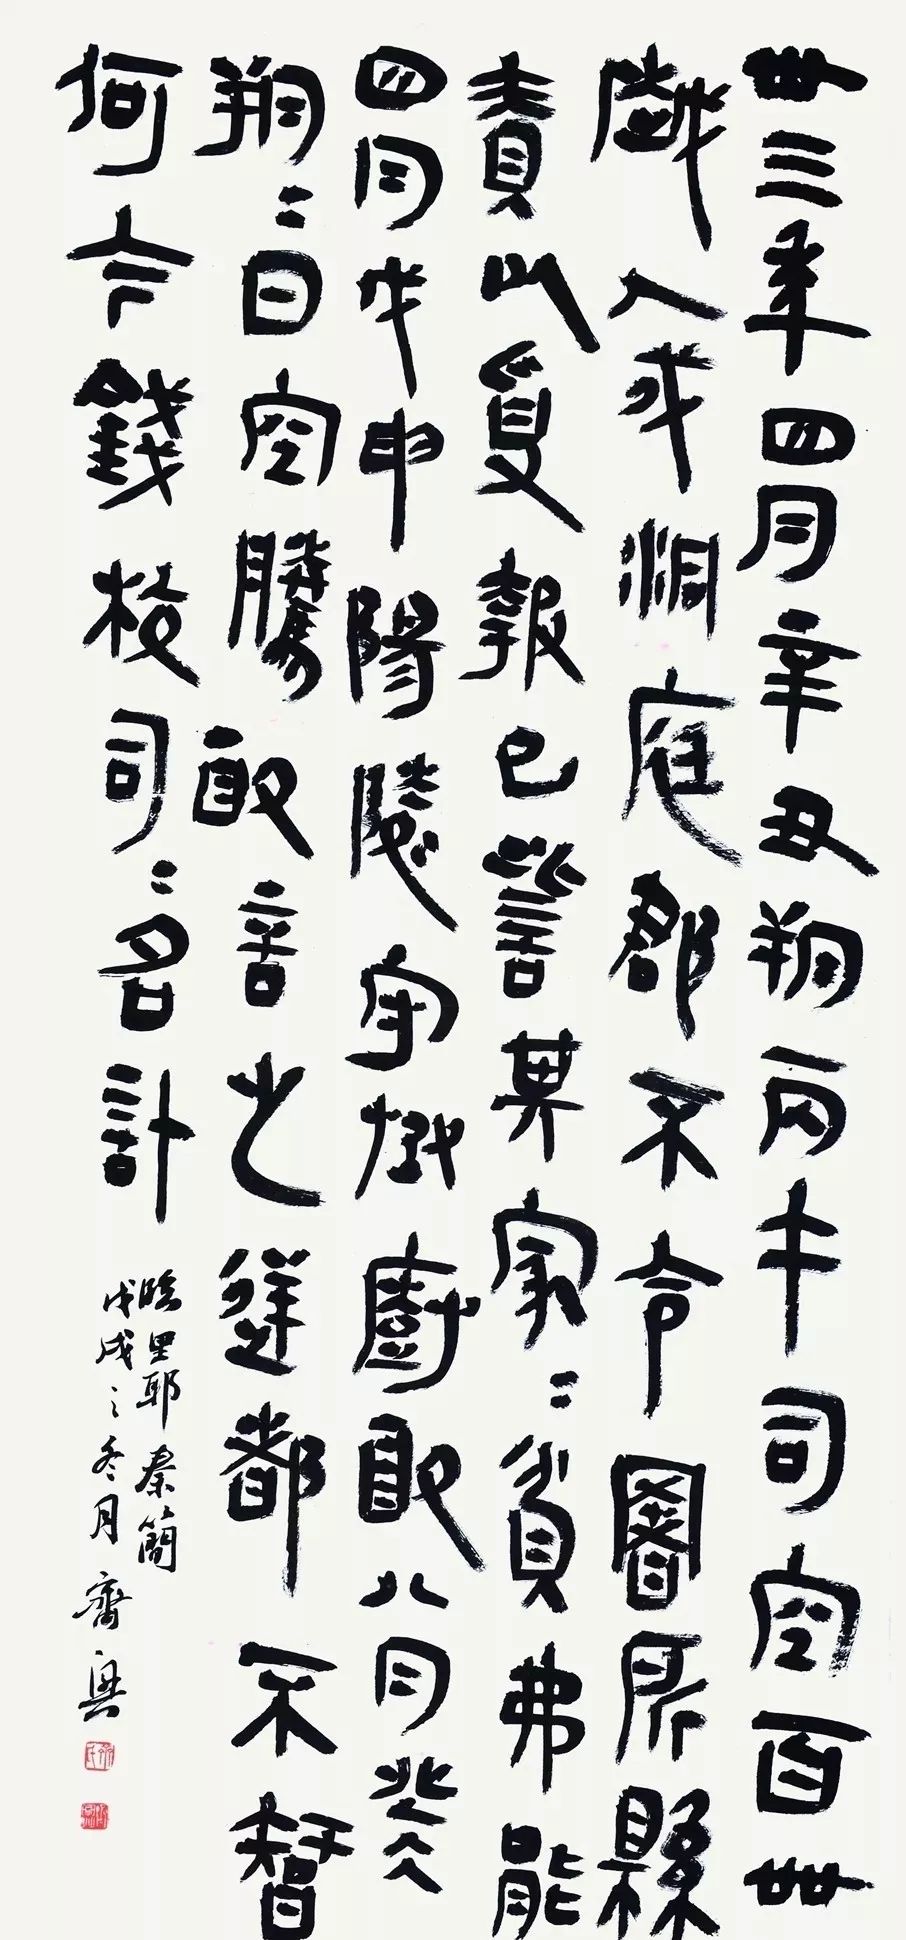 卅三年四月辛丑朔丙午司空百卌
人戍洞庭郡不令圖縣
責以受報已訾其家=貧弗能
四月戊申陽陵守廚敢八月癸
朔=日空騰敢言之都不智
何令錢校司=名計
臨里耶秦簡
戊戌之冬月齋